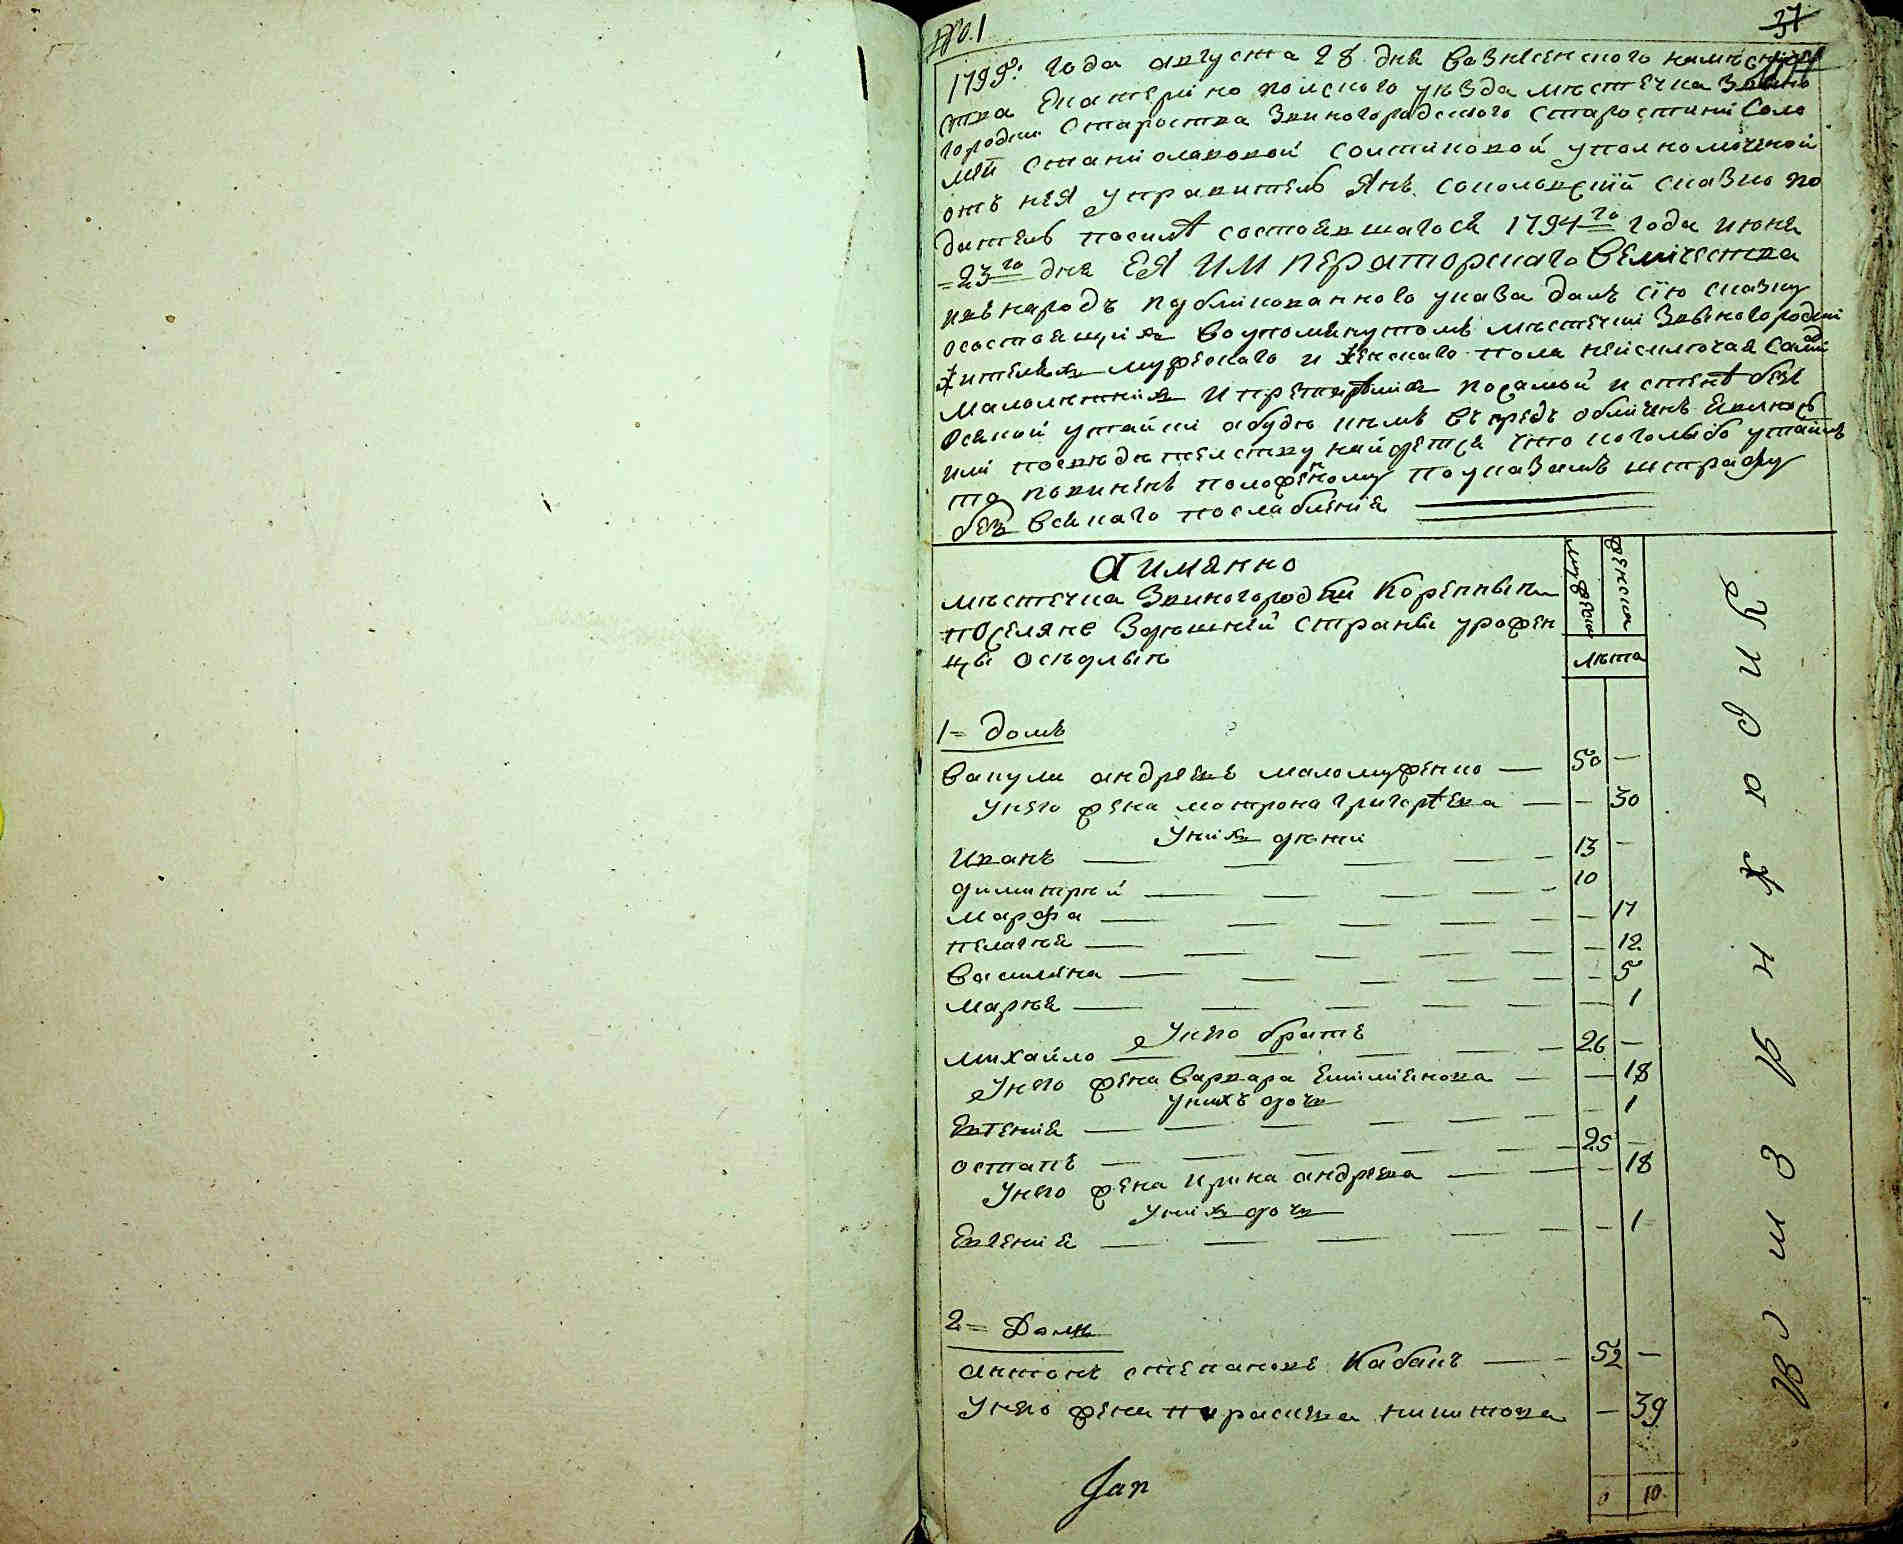 № 1
37
1795: года августа 28 дня Вознесенского намѣсниче
ства Екатеринопольского уѣзда мѣстечка Звино
городки Староства Звиногородского Старостини Соло
мѣи Станиславовой Солтиковой уполномоченой
отъ нея управитель Янъ Соколовскїй сказко по
датель посилѣ состоявшагося 1794го года июня
23го дня ЕЯ ИМПЕРАТОРСкаго Величества
ивънародъ публикованного указа далъ сїю сказку
осостоящихъ воупомянутомъ мѣстечки Звеногородки
жителяхъ мужескаго и женскаго пола неисключая сами
малолѣтнихъ и престарѣлихъ посамой истенѣ без
всякой утайки абуде кемъ впредь обличенъ явлюсь
или посвидѣтелству найдется что коголибо утаилъ
то повиненъ положеному поуказамъ штрафу
безъ всякаго послабленїя
А имянно
мѣстечка Звиногородки Коренныхъ
поселянъ Здѣшней страны урожен
цы осѣдлыхъ
мужеска
женска
лѣта
1= домъ
Вакула андреевъ маломуженко — 50 —
Унего жена мотрона григорѣева — — 30
Унихъ дѣти
Иванъ — 13 —
димитрий — 10
марфа — — 17
пелагѣя — — 12
василяна — — 5
марѣя — — 1
Унего братъ
михайло — 26 —
Унего жена Варвара Емилиянова — — 18
унихъ дочь
Евгения — — 1
остапъ — 25 —
Унего жена Ирина андреева — — 18
Унихъ дочь
Евгения — — 1
2= Домъ
антонъ степановъ Кабанъ — 52 —
Унего жена параскева никитова — 39
Jan
10